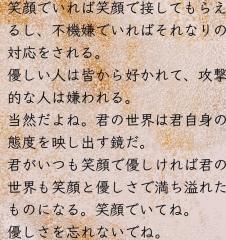 笑顔でいれば笑顔で接してもらえ
るし、不機嫌でいればそれなりの
対応をされる。
優しい人は皆から好かれて、攻撃
的な人は嫌われる。
当然だよね。君の世界は君自身の
態度を映し出す鏡だ。
君がいつも笑顔で優しければ君の
世界も笑顔と優しさで満ち溢れた
ものになる。笑顔でいてね。
優しさを忘れないでね。